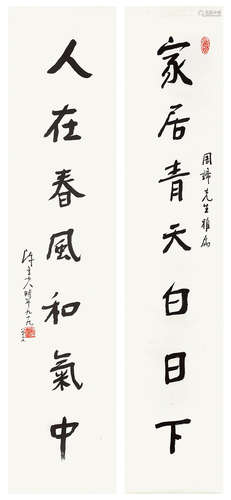 家居青天白日下
周諦先生雅屬
人在春風和氣中